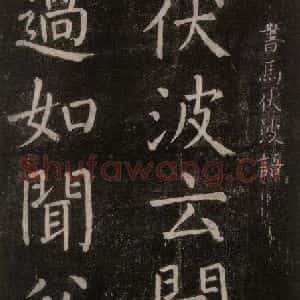 書馬伏波語
伏波云聞
過如聞父
Shufawang.cn